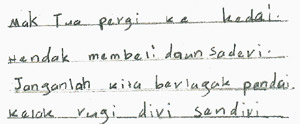 Mak Tua pergi ke kedai.
Hendak membeli daun saderi.
Janganlah kita berlagak pandai.
Kelak rugi diri sendiri.